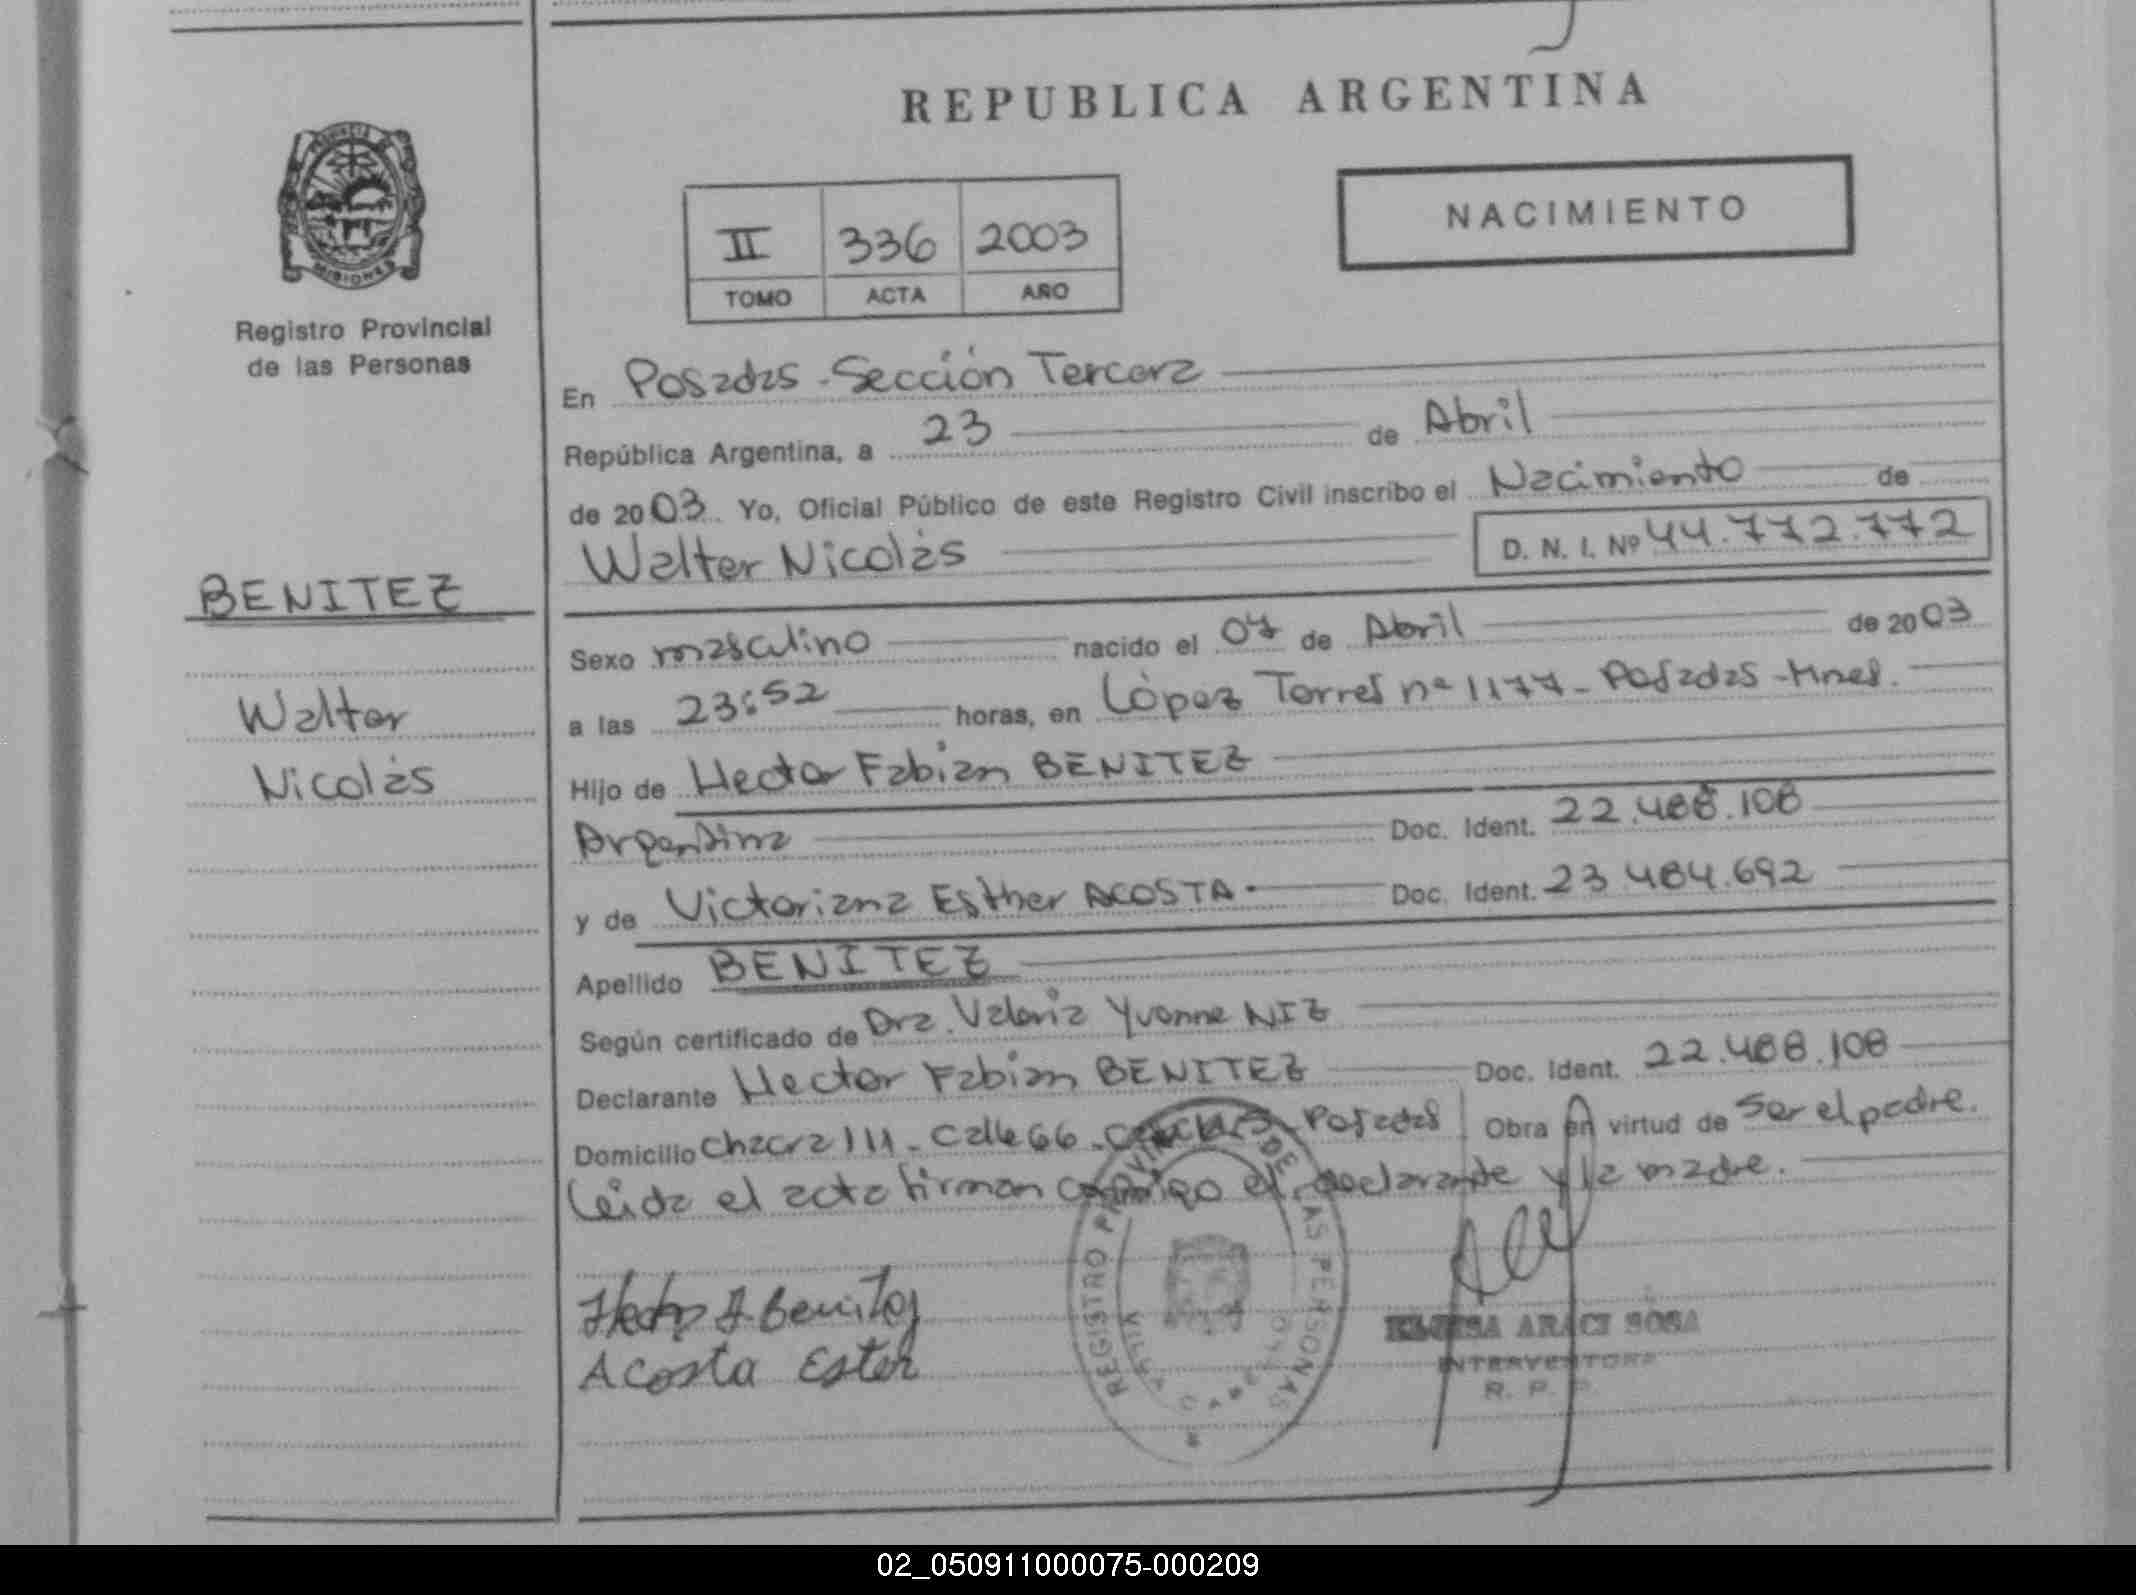 REPUBLICA ARGENTINA
PROVINCIA DE
MISIONES
Registro Provincial
de las Personas
NACIMIENTO
II 336 2003
TOMO ACTA AÑO
En Posadas - Sección Tercera
República Argentina, a 23 de Abril
de 2003. Yo, Oficial Público de este Registro Civil inscribo el Nacimiento de
Walter Nicolás D. N. I. Nº 44.772.772
BENITEZ
Walter
Nicolás
Sexo masculino nacido el 07 de Abril de 2003
a las 23:52 horas, en López Torres nº 1177 - Posadas - Mnes.
Hijo de Hector Fabian BENITEZ
Argentina Doc. Ident. 22.488.108
y de Victoriana Esther ACOSTA. Doc. Ident. 23.484.692
Apellido BENITEZ
Según certificado de Dra. Valeria Yvonne NIZ
Declarante Hector Fabian BENITEZ Doc. Ident. 22.488.108
Domicilio Chacra 111 - Calle 66 - Posadas Obra en virtud de ser el padre.
Leida el acta firman conmigo el declarante y la madre.
Hector F. Benitez
Acosta Ester
REGISTRO PROVINCIAL DE LAS PERSONAS
VILLA CABELLO
ARACI SOSA
INTERVENTORA
R. P. P.
02_050911000075-000209